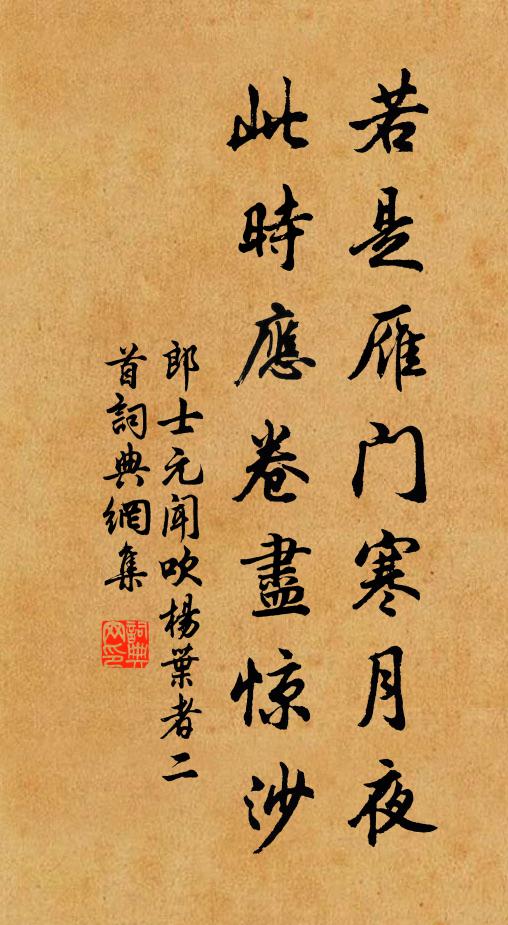 若是雁门寒月夜
此時應卷盡惊沙
郎士元闻吹楊葉者二
首詞典網集
詞典
网印